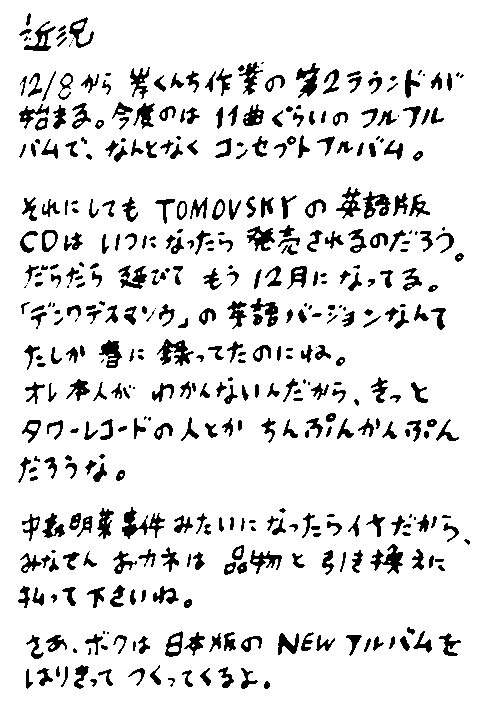 近況
12/8から 岸くんち作業の第2ラウンドが
始まる。今度のは 11曲ぐらいの フルアル
バムで、なんとなく コンセプトアルバム。
それにしても TOMOVSKYの 英語版
CDは いつになったら 発売されるのだろう。
だらだら 延びて もう 12月に なってる。
「デンワデスマソウ」の 英語バージョンなんて
たしか 春に 録ってたのにね。
オレ本人が わかんないんだから、きっと
タワーレコードの人とか ちんぷんかんぷん
だろうな。
中森明菜事件みたいに なったらイヤだから、
みなせん おカネは 品物と 引き換えに
払って下さいね。
さあ、ボクは 日本版の NEWアルバムを
はりきって つくってくるよ。